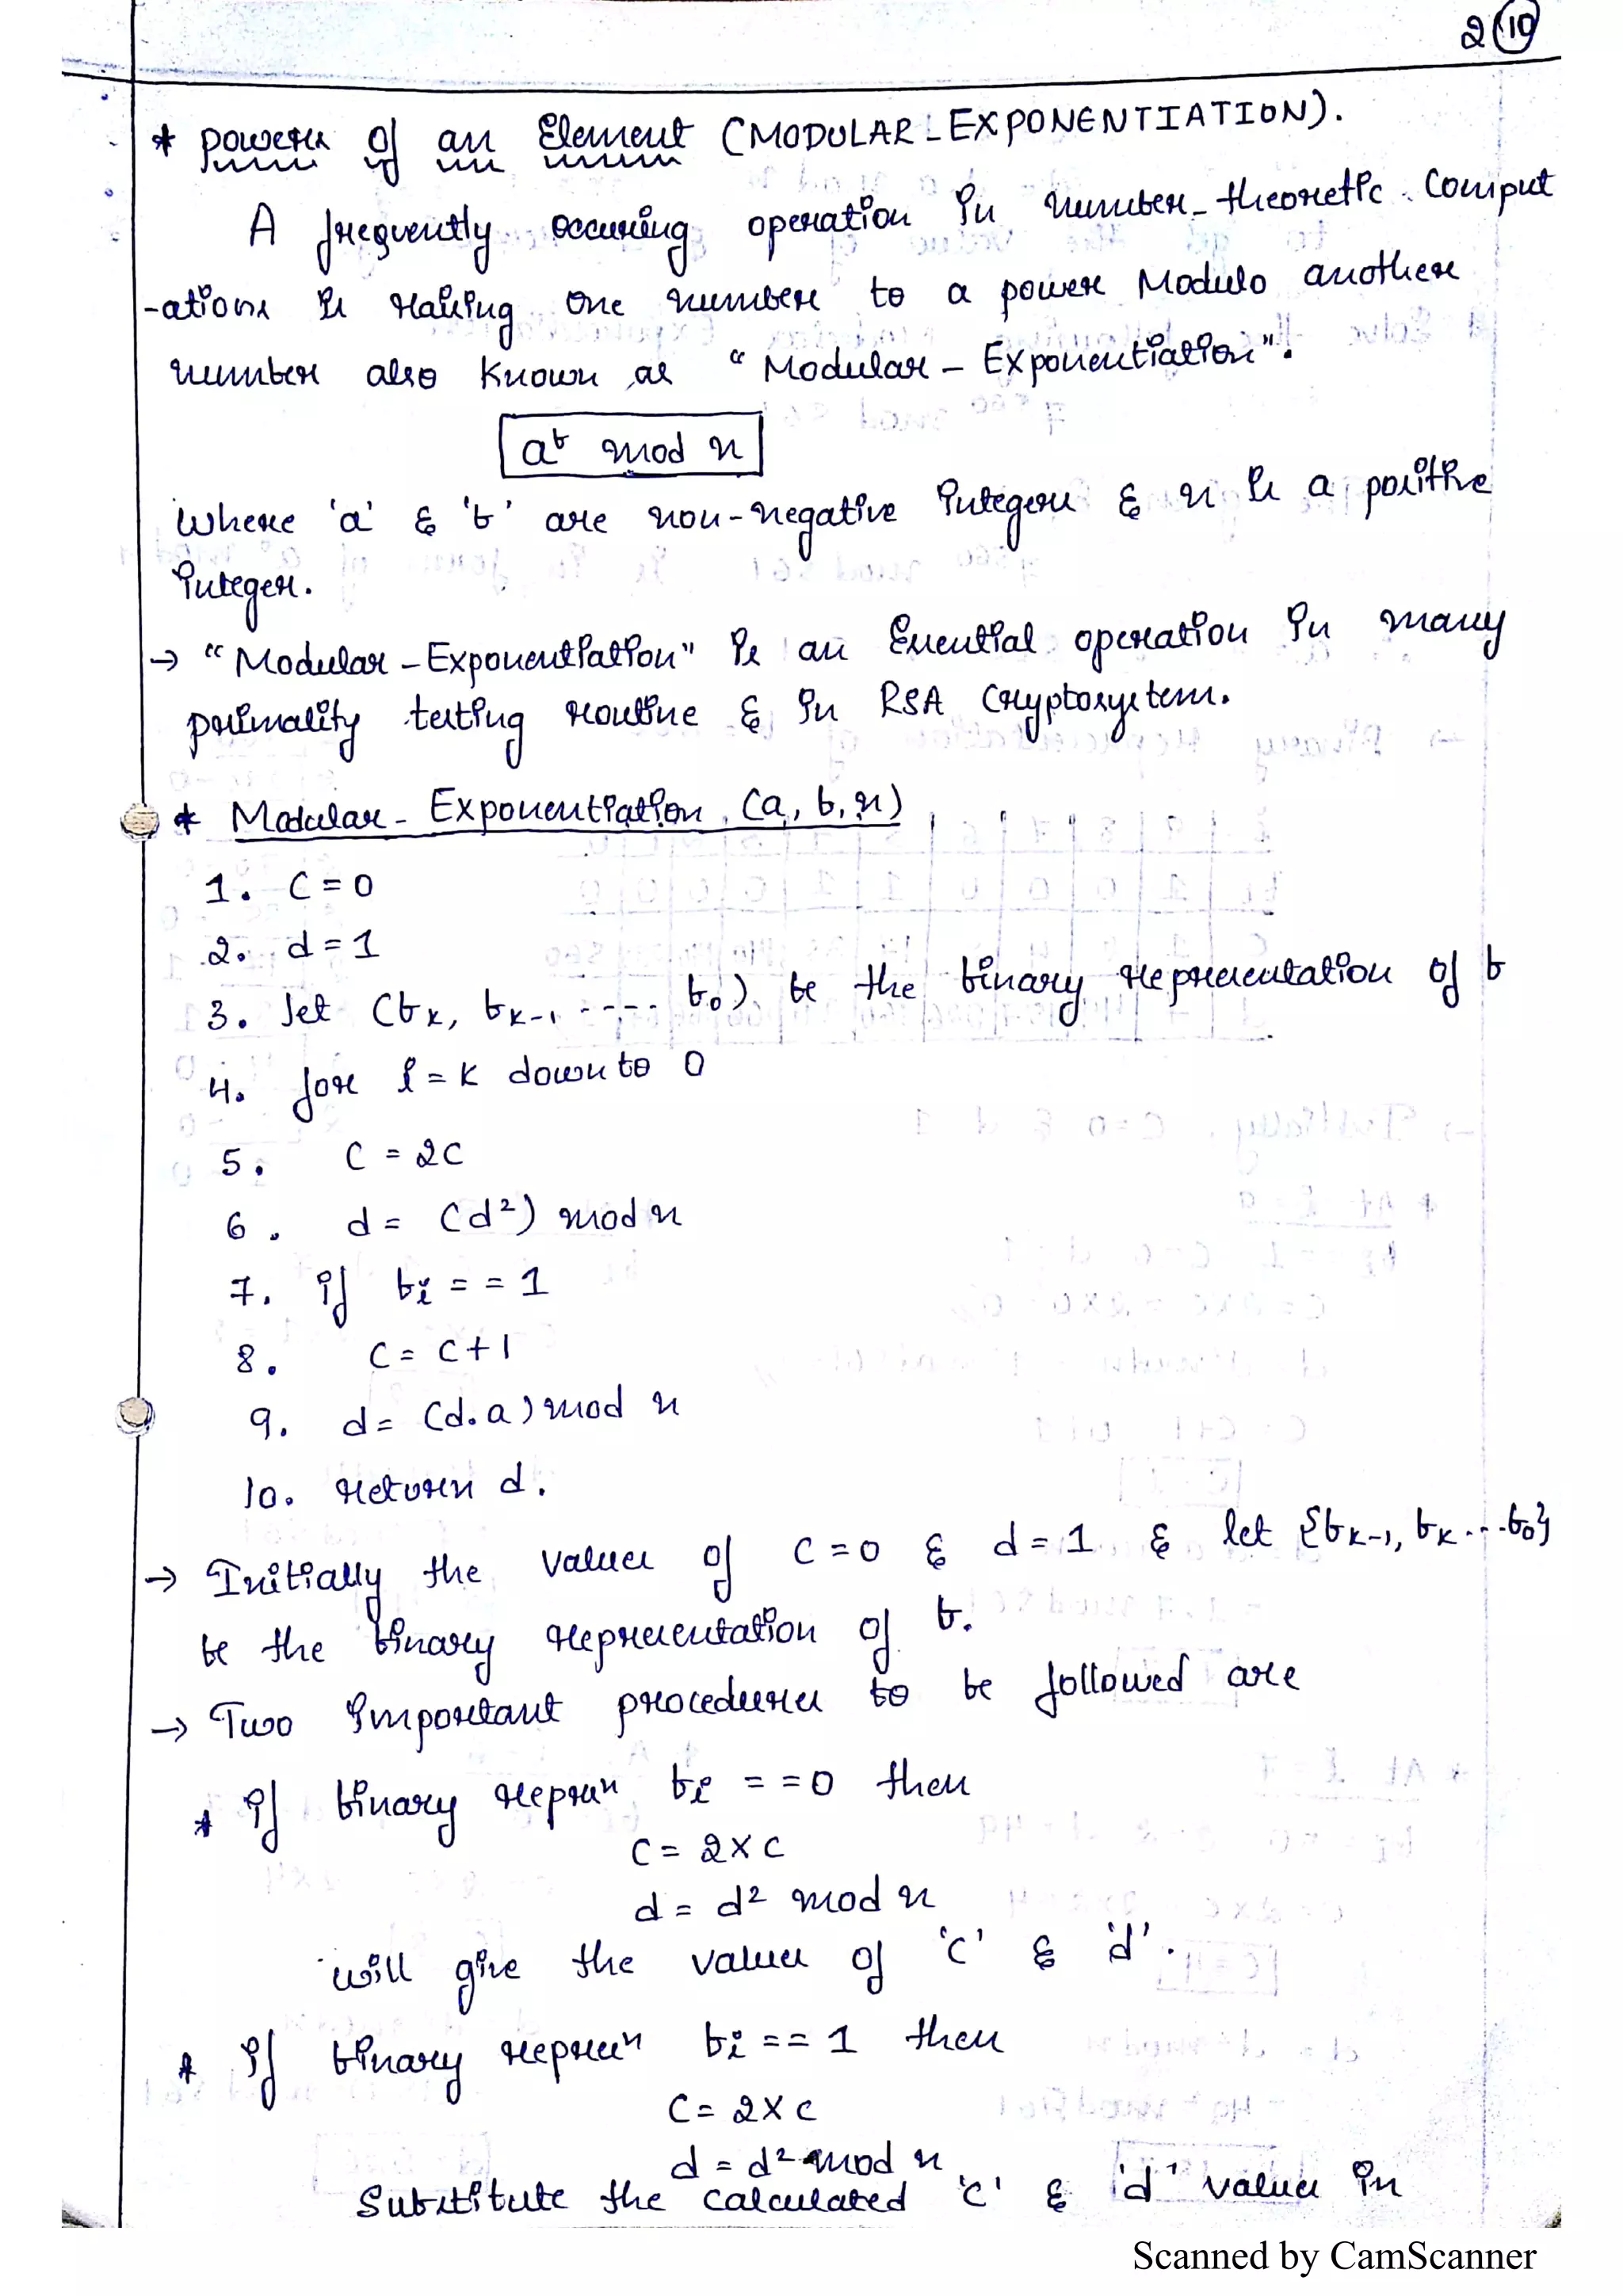 2 (10)
* Powers of an Element (MODULAR-EXPONENTIATION).
A frequently occuring operation in number-theoretic comput
-ations is raising one number to a power Modulo another
number also known as "Modular-Exponentiation".
a^b mod n
Where 'a' & 'b' are non-negative integers & n is a positive
integer.
→ "Modular-Exponentiation" is an Essential operation in many
primality testing routine & in RSA Cryptosystem.
* Modular-Exponentiation (a, b, n)
1. C = 0
2. d = 1
3. let (bk, bk-1 ----- b0) be the binary representation of b
4. for i = k down to 0
5. C = 2C
6. d = (d²) mod n
7. if bi == 1
8. C = C+1
9. d = (d.a) mod n
10. return d.
→ Initially the values of C = 0 & d = 1 & let {bk-1, bk...b0}
be the binary representation of b.
→ Two important procedures to be followed are
* if binary represⁿ bi == 0 then
C = 2×C
d = d² mod n
will give the values of 'c' & 'd'.
* if binary represⁿ bi == 1 then
C = 2×C
d = d² mod n
Substitute the calculated 'c' & 'd' values in
Scanned by CamScanner